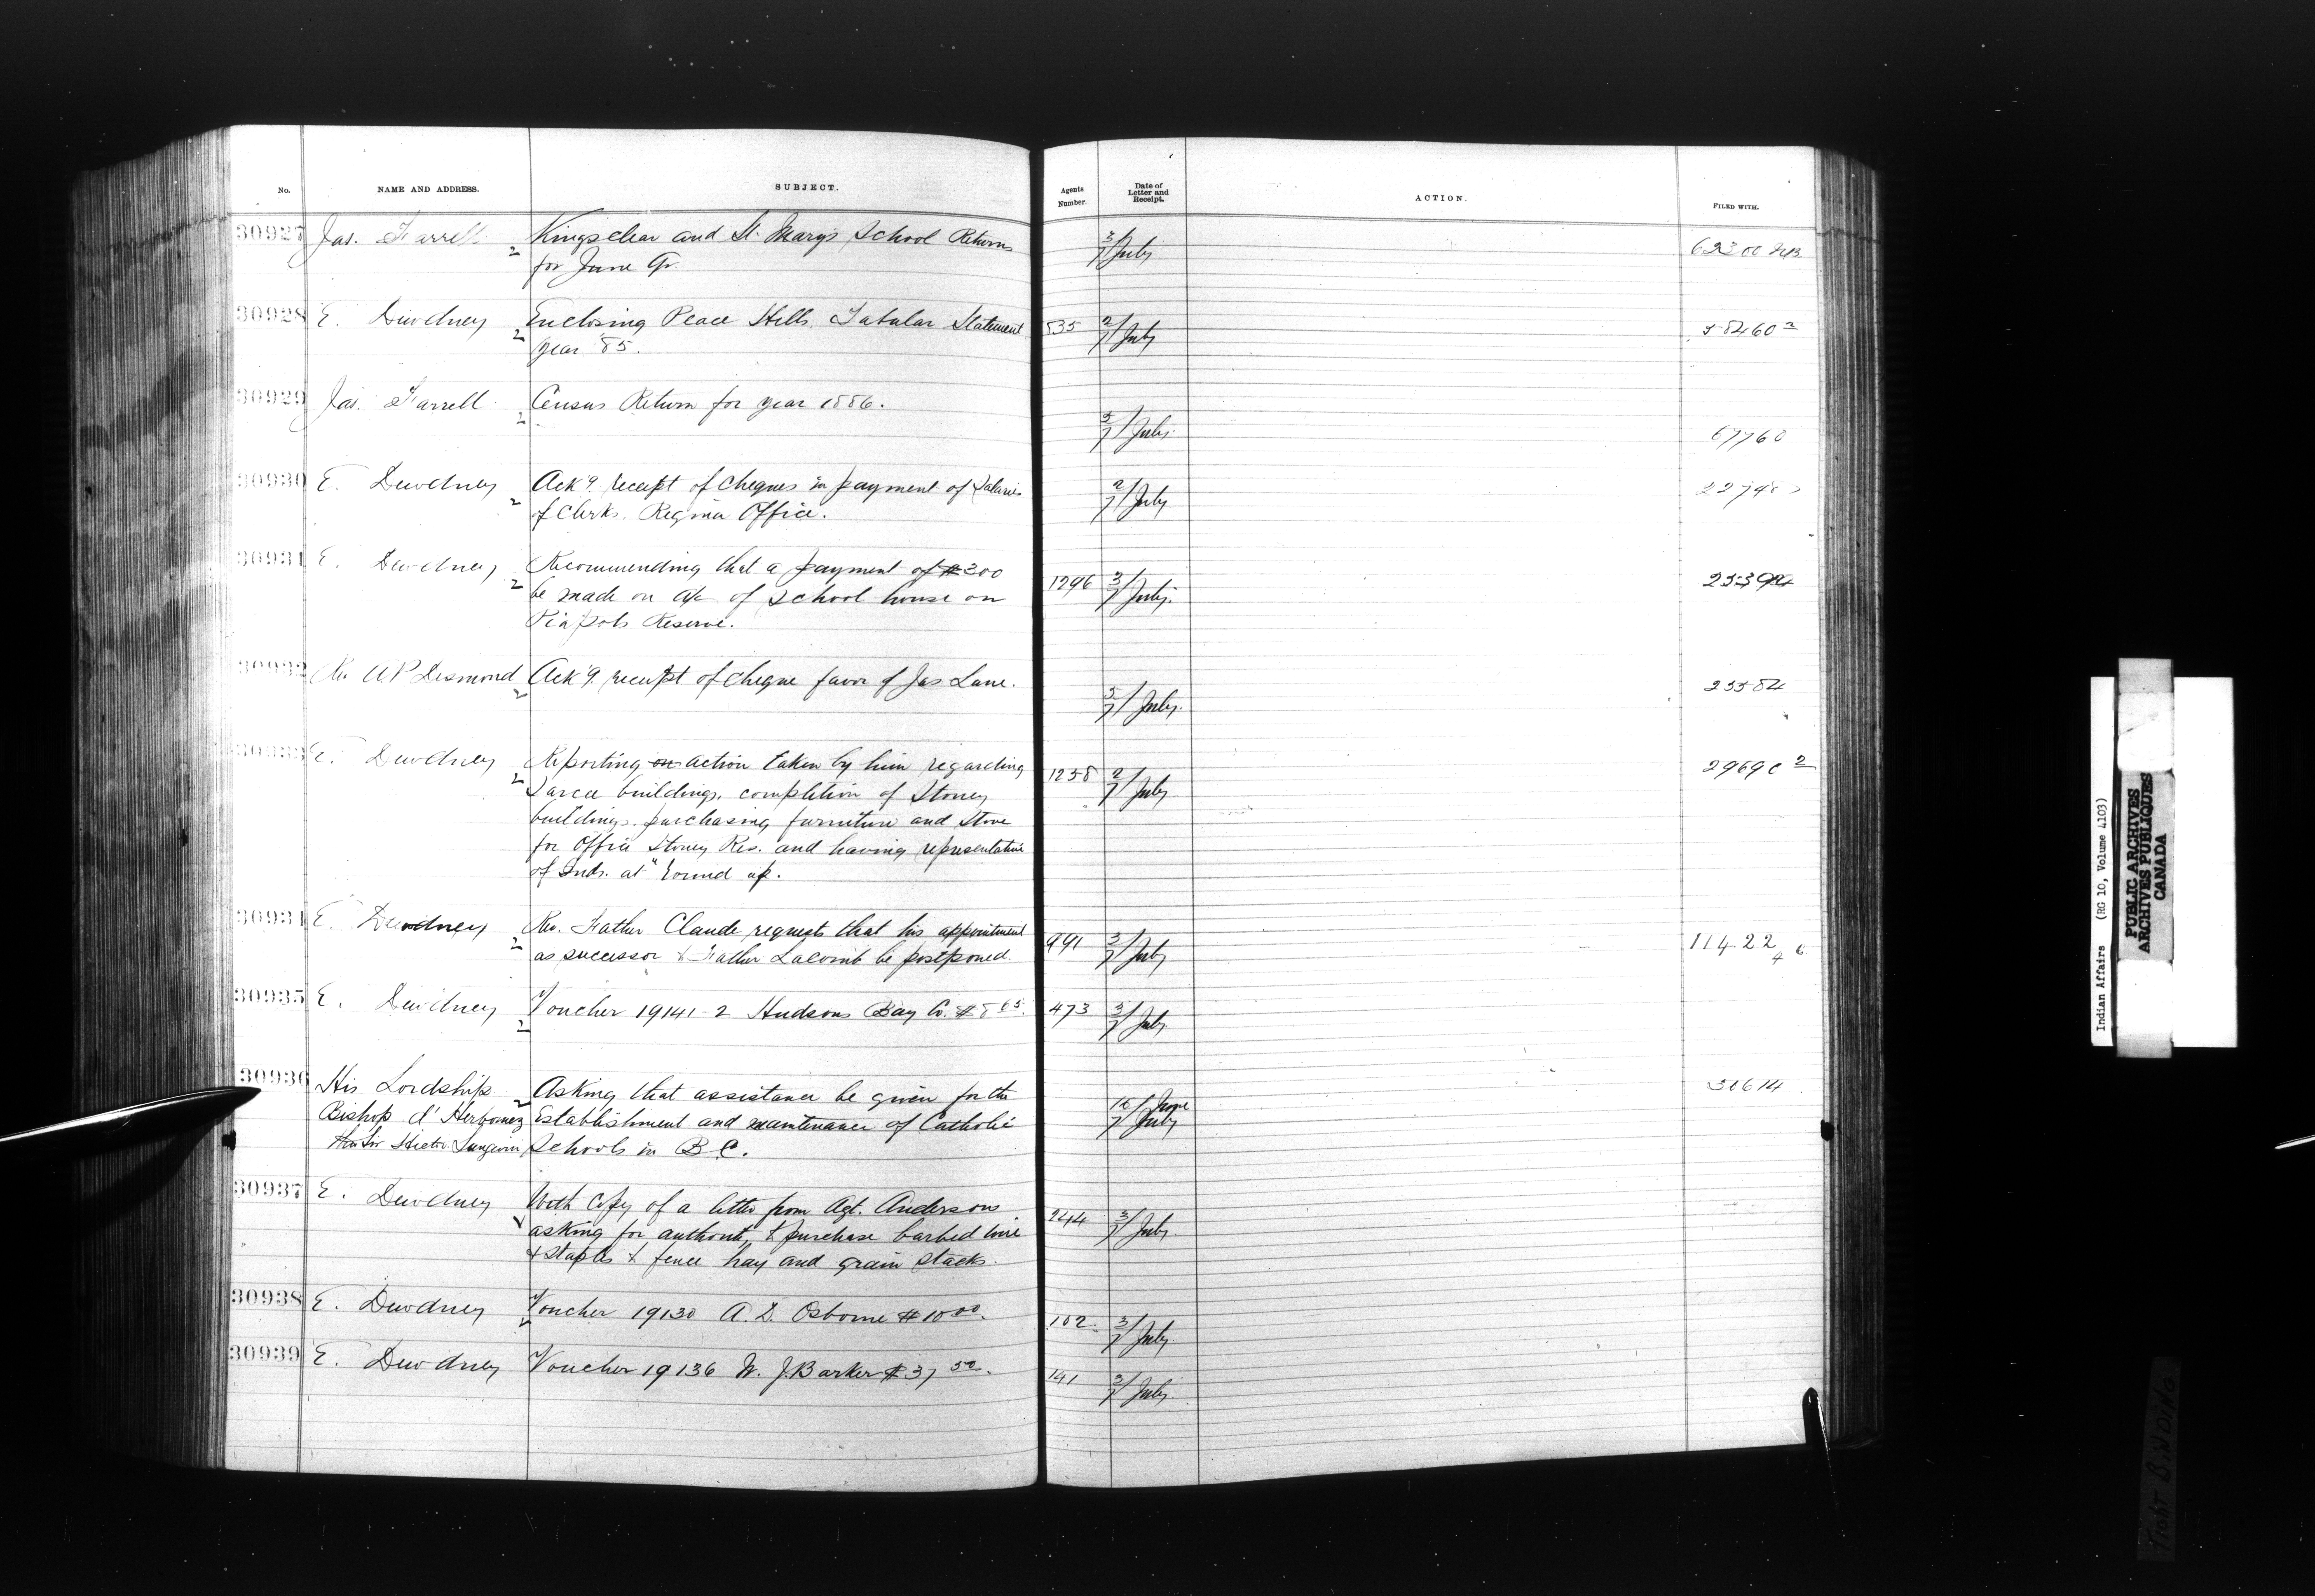 No. NAME AND ADDRESS. SUBJECT. Agents Number. Date of Letter and Receipt. ACTION. FILED WITH.
30927 Jas. Farrell Kingsclear and St. Mary's School Returns 3/7 July
for June Qr.
30928 E. Dewdney Enclosing Peace Hills Tabular Statement 535 2/7 July
year 85.
30929 Jas. Farrell Census Return for year 1886. 5/7 July
30930 E. Dewdney Ack'g. receipt of cheques in payment of Salaries 2/7 July
of Clerks. Regina Office.
30931 E. Dewdney Recommending that a payment of $300 1296 3/7 July
be made on a/c of School house on
Pia pots Reserve.
30932 A. P Desmond Ack'g. receipt of cheque favor of Jas. Lane. 5/7 July. 23584
30933 E. Dewdney Reporting on action taken by him regarding 1258 2/7 July
Sarcee buildings, completion of Stoney
buildings, purchasing furniture and Stove
for Office Stoney Res. and having representative
of Inds. at "round up.
30934 E. Dewdney Rev. Father Claude requests that his appointment 991 3/7 July
as successor to Father Lacomb be postponed.
30935 E. Dewdney Voucher 19141-2 Hudsons Bay Co. 473 3/7 July
30936 His Lordship Asking that assistance be given for the 16 June
Bishop d'Herbomez Establishment and maintenance of Catholic 7 July
Hon Sir Hector Langevin Schools in B.C.
30937 E. Dewdney With Copy of a letter from Agt. Anderson 244 3/7 July
asking for authority to purchase barbed wire
& staples to fence hay and grain stacks.
30938 E. Dewdney Voucher 19130 A. D. Osborne $10 00. 102 3/7 July
30939 E. Dewdney Voucher 19136 W. J. Barker $37 50. 141 3/7 July
Indian Affairs (RG 10, Volume 4103)
PUBLIC ARCHIVES
ARCHIVES PUBLIQUES
CANADA
TIGHT BINDING